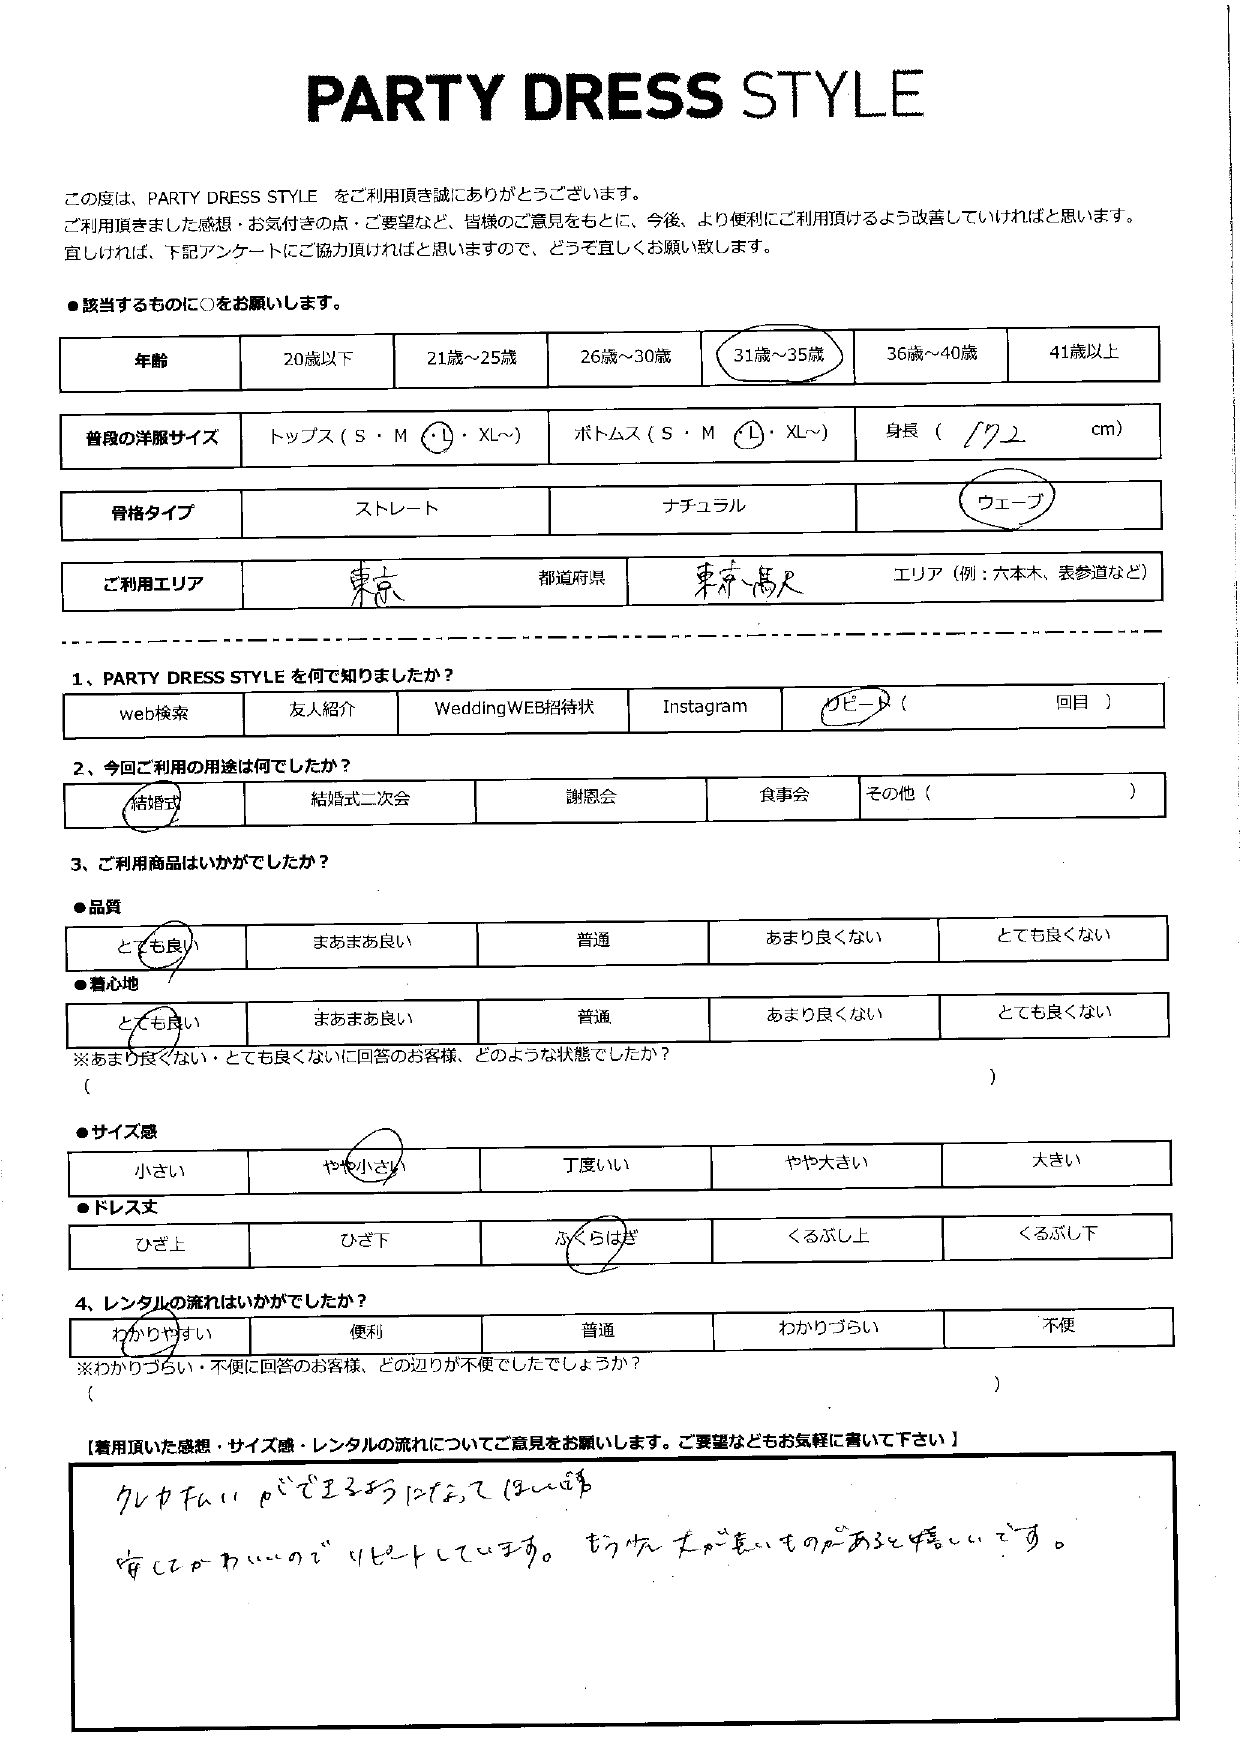 PARTY DRESS STYLE
この度は、PARTY DRESS STYLE をご利用頂き誠にありがとうございます。
ご利用頂きました感想・お気付きの点・ご要望など、皆様のご意見をもとに、今後、より便利にご利用頂けるよう改善していければと思います。
宜しければ、下記アンケートにご協力頂ければと思いますので、どうぞ宜しくお願い致します。
●該当するものに○をお願いします。
年齢 20歳以下 21歳～25歳 26歳～30歳 31歳～35歳 36歳～40歳 41歳以上
普段の洋服サイズ トップス ( S ・ M ・L ・ XL～) ボトムス ( S ・ M ・L ・ XL～) 身長 ( 172 cm)
骨格タイプ ストレート ナチュラル ウェーブ
ご利用エリア 東京 都道府県 東京 エリア（例：六本木、表参道など）
1、PARTY DRESS STYLE を何で知りましたか？
web検索 友人紹介 WeddingWEB招待状 Instagram リピート（ 回目 ）
2、今回ご利用の用途は何でしたか？
結婚式 結婚式二次会 謝恩会 食事会 その他（ ）
3、ご利用商品はいかがでしたか？
●品質
とても良い まあまあ良い 普通 あまり良くない とても良くない
●着心地
とても良い まあまあ良い 普通 あまり良くない とても良くない
※あまり良くない・とても良くないに回答のお客様、どのような状態でしたか？
( )
●サイズ感
小さい やや小さい 丁度いい やや大きい 大きい
●ドレス丈
ひざ上 ひざ下 ふくらはぎ くるぶし上 くるぶし下
4、レンタルの流れはいかがでしたか？
わかりやすい 便利 普通 わかりづらい 不便
※わかりづらい・不便に回答のお客様、どの辺りが不便でしたでしょうか？
( )
【着用頂いた感想・サイズ感・レンタルの流れについてご意見をお願いします。ご要望などもお気軽に書いて下さい】
クレカ払いができるようになって
安してかわいいので リピートしています。 もう少し丈が長いものがあると嬉しいです。